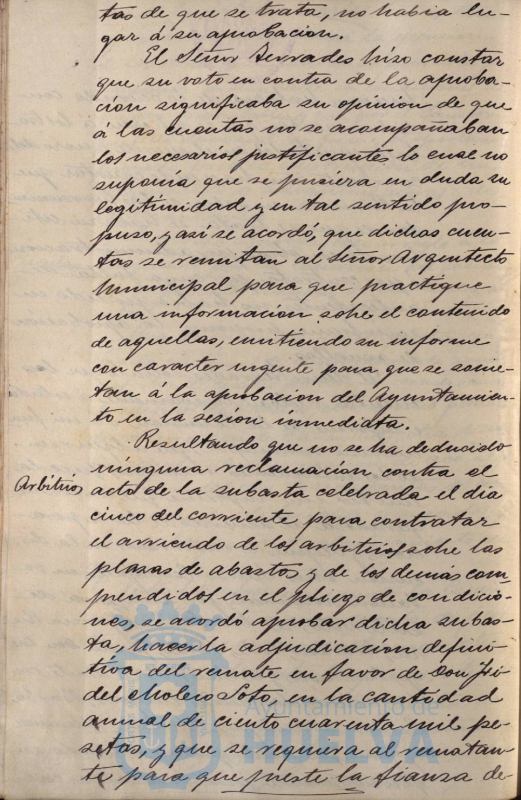 tas de que se trata, no habia lu-
gar á su aprobacion.
El Señor Terrades hizo constar
que su voto en contra de la aproba-
cion significaba su opinion de que
á las cuentas no se acompañaban
los necesarios justificantes lo cual no
suponia que se pusiera en duda su
legitimidad y en tal sentido pro-
puso, y así se acordó, que dichas cuen-
tas se remitan al Señor Arquitecto
Municipal para que practique
una informacion sobre el contenido
de aquellas, emitiendo su informe
con caracter urgente para que se some-
tan á la aprobacion del Ayuntamien-
to en la sesion inmediata.
Resultando que no se ha deducido
ninguna reclamación contra el
Arbitrios
acto de la subasta celebrada el dia
cinco del corriente para contratar
el arriendo de los arbitrios sobre las
plazas de abastos y de los demás com-
prendidos en el pliego de condicio-
nes, se acordó aprobar dicha subas-
ta, hacer la adjudicacion defini-
tiva del remate en favor de Don
del Molero Soto, en la cantidad
annual de ciento cuarenta mil pe-
setas, y que se requiera al rematan-
te para que preste la fianza de-
Ayuntamiento de
HUELVA